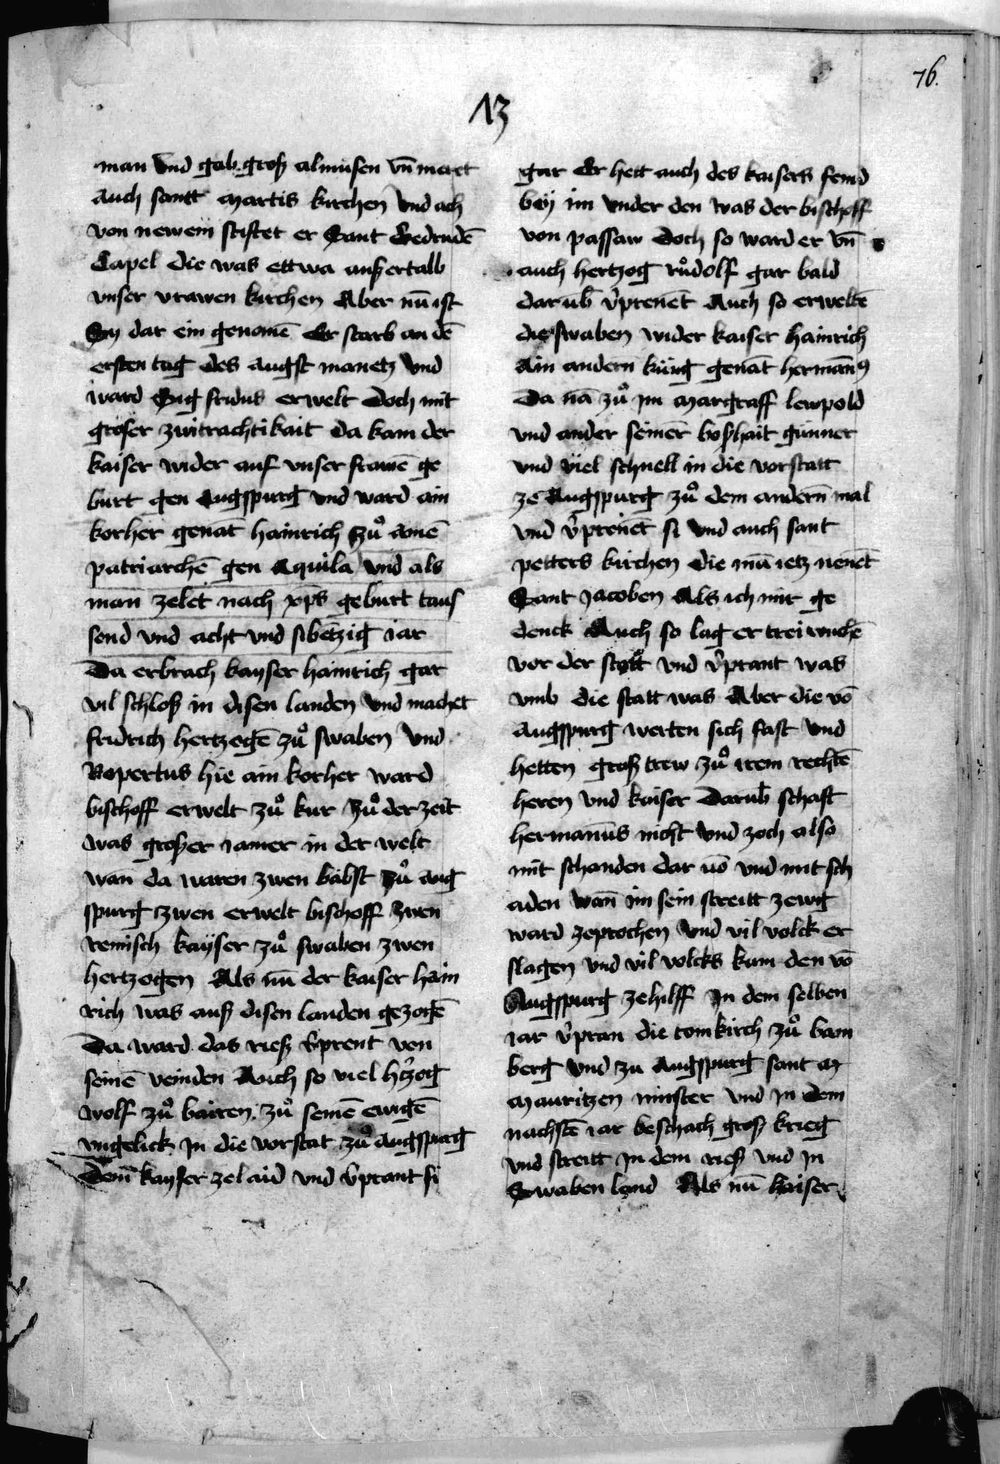 76.
13
man vnd gab groß almůsen vn̄ meret
auch santt martis kirchen vnd ach
von newem stiftet er Sant Gedrudē
Capel die was ettwa aussertalb
vnser vrawen kirchen Aber nū ist
Sy dar ein genomē Er starb an dē
ersten tag des augst manetz vnd
ward Sigfridus erwelt doch mit
groser zwitrachtikait da kam der
kaiser wider auf vnser frawē ge
burt gen Augspurg vnd ward ain
korher genāt hainrich zů ainē
patriarchē gen Aquila vnd als
man zelet nach xp̄s geburt taus
send vnd acht vnd sibetzig iar
Da erbrach kayser hainrich gar
vil schloß in disen landen vnd machet
fridrich hertzogē zů swaben vnd
Ropertus hie ain korher ward
bischoff erwelt zů kur zů der zeit
was groser iamer in der welt
wan̄ da waren zwen bäbst zů aug
spurg zwen erwelt bischoff zwen
remisch kayser zů swaben zwen
hertzogen Als nū der kaiser hain
rich was auß disen landen gezogē
Da ward das rieß v̄prent von
seinē veinden Auch so viel h̄tzog
wolf zů bairen zů seinē ewigē
vngelick in die vorstat zů augspurg
Dem kayser zelaid vnd v̄prant si
gar Er hett auch des kaisers feind
bey im vnder den was der bischoff
von passaw Doch so ward er vn̄
auch hertzog růdolf gar bald
dar ub̄ v̄prenēt Auch so erweltē
die swaben wider kaiser hainrich
Ain andern küng genāt hermān9
Da nā zů im margraff lewpold
vnd ander seiner boßhait günner
vnd viel schnell in die vorstatt
ze Augspurg zů dem andern mal
vnd v̄prenēt si vnd auch sant
petters kirchen die mā ietz nenēt
Sant Jacoben Als ich mir ge
denck Auch so lag er trei wuchē
vor der statt vnd v̄prant was
vmb die statt was Aber die vō
augspurg werten sich fast vnd
hetten groß trew zů irem rechtē
heren vnd kaiser Darub̄ schaft
hermanus nicht vnd zoch also
mit schanden dar vō vnd mit sch
aden wan̄ im sein streitt zewg
ward zeprochen vnd vil volck er
slagen vnd vil volcks kam den vō
Augspurg zehilff In dem selben
iar v̄pran die tomkirch zů bam
berg vnd zu Augspurg sant m
mauritzen minster vnd in dem
nachstē iar beschach groß krieg
vnd streitt in dem rieß vnd in
Swaben land Als nū kaiser